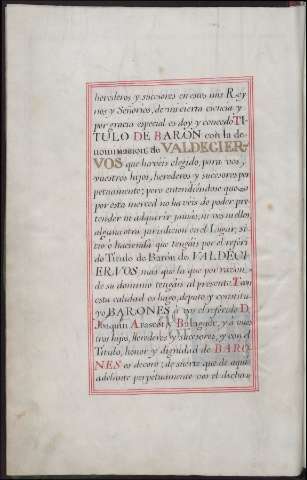 herederos y succesores en estos mis Rey
nos y Señorios, de mi cierta ciencia y
por gracia especial os doy y concedo TI
TULO DE BARON con la de
nominacion de VALDECIER
VOS que haveis elegido, para vos, y
vuestros hijos, herederos y successores per
petuamente; pero entendiendose que
por esta merced no haveis de poder pre
tender ni adquirir jamàs, ni vos ni ellos,
alguna otra jurisdicion en el Lugar, si
tio ò hacienda que tengais por el referi
do Titulo de Baron de VALDECI
ERVOS mas que la que por razon
de su dominio tengais al presente: Con
esta calidad os hago, deputo y constitu
yo BARONES à vos el referido D.
Joaquin Arascot y Balaguer, y a vues
tros hijos, Herederos y successores, y con el
Titulo, honor y dignidad de BARO
NES os decoro; de suerte que de aqui
adelante perpetuamente vos el dicho